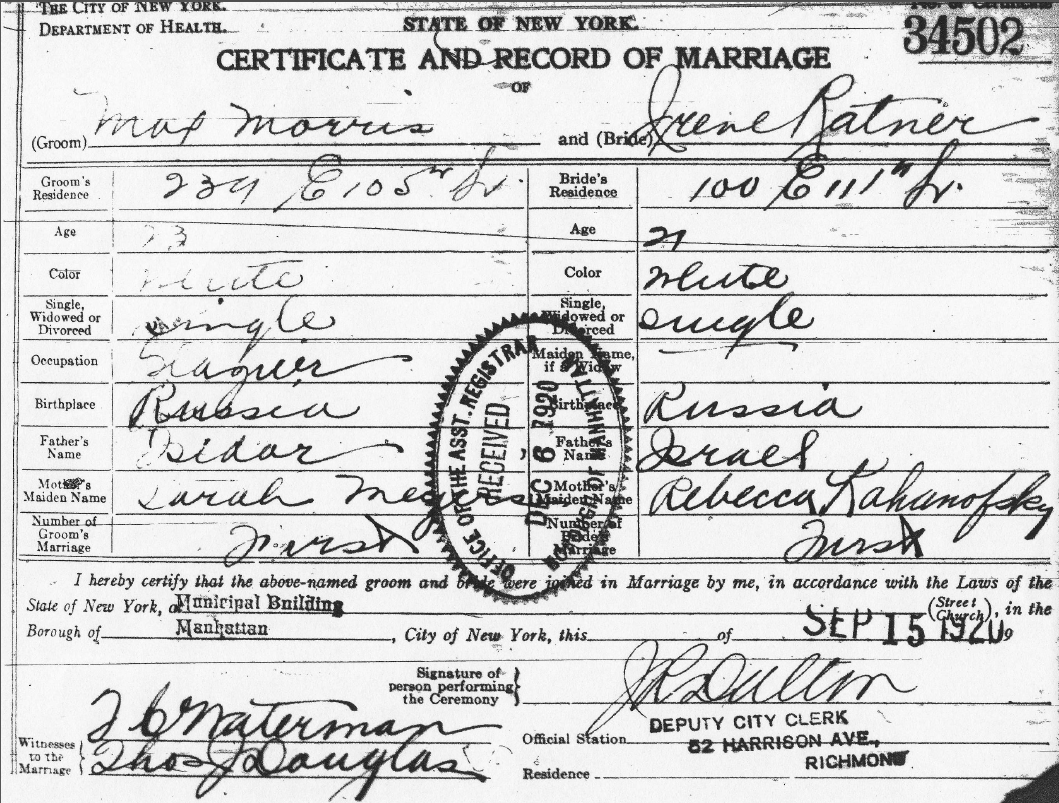 THE CITY OF NEW YORK.
DEPARTMENT OF HEALTH.
STATE OF NEW YORK.
No. of Certificate
34502
CERTIFICATE AND RECORD OF MARRIAGE
OF
(Groom) Max Morris and (Bride) Irene Ratner
Groom's Residence 239 E 105th St. Bride's Residence 100 E 111th St.
Age 23 Age 21
Color White Color White
Single, Widowed or Divorced Single Single, Widowed or Divorced Single
Occupation Maiden Name, if a Widow
Birthplace Russia Birthplace Russia
Father's Name Isidor Father's Name Israel
Mother's Maiden Name Sarah Meyers Mother's Maiden Name Rebecca Kahanofsky
Number of Groom's Marriage First Number of Bride's Marriage First
OFFICE OF THE ASST. REGISTRAR
RECEIVED
DEC 6 1920
BOROUGH OF MANHATTAN
I hereby certify that the above-named groom and bride were joined in Marriage by me, in accordance with the Laws of the
State of New York, at Municipal Building (Street Church), in the
Borough of Manhattan, City of New York, this of SEP 15 1920
Signature of person performing the Ceremony J R Dalton
Witnesses to the Marriage
J C Waterman
Thos J Douglas
Official Station DEPUTY CITY CLERK
52 HARRISON AVE.,
RICHMOND
Residence